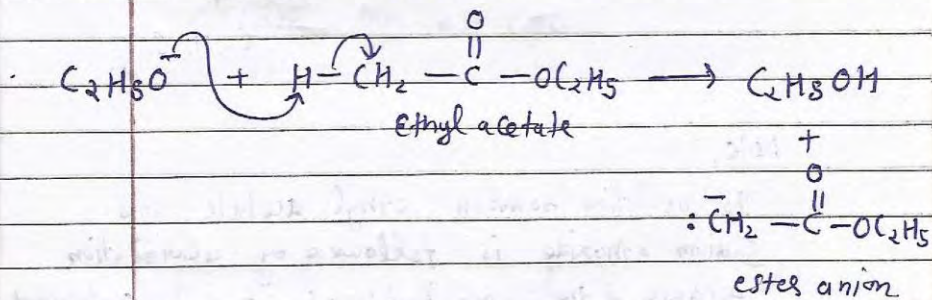 O
||
C₂H₅O⁻ + H – CH₂ – C – OC₂H₅ ⟶ C₂H₅OH
Ethyl acetate
+
O
||
:C̄H₂ – C – OC₂H₅
ester anion